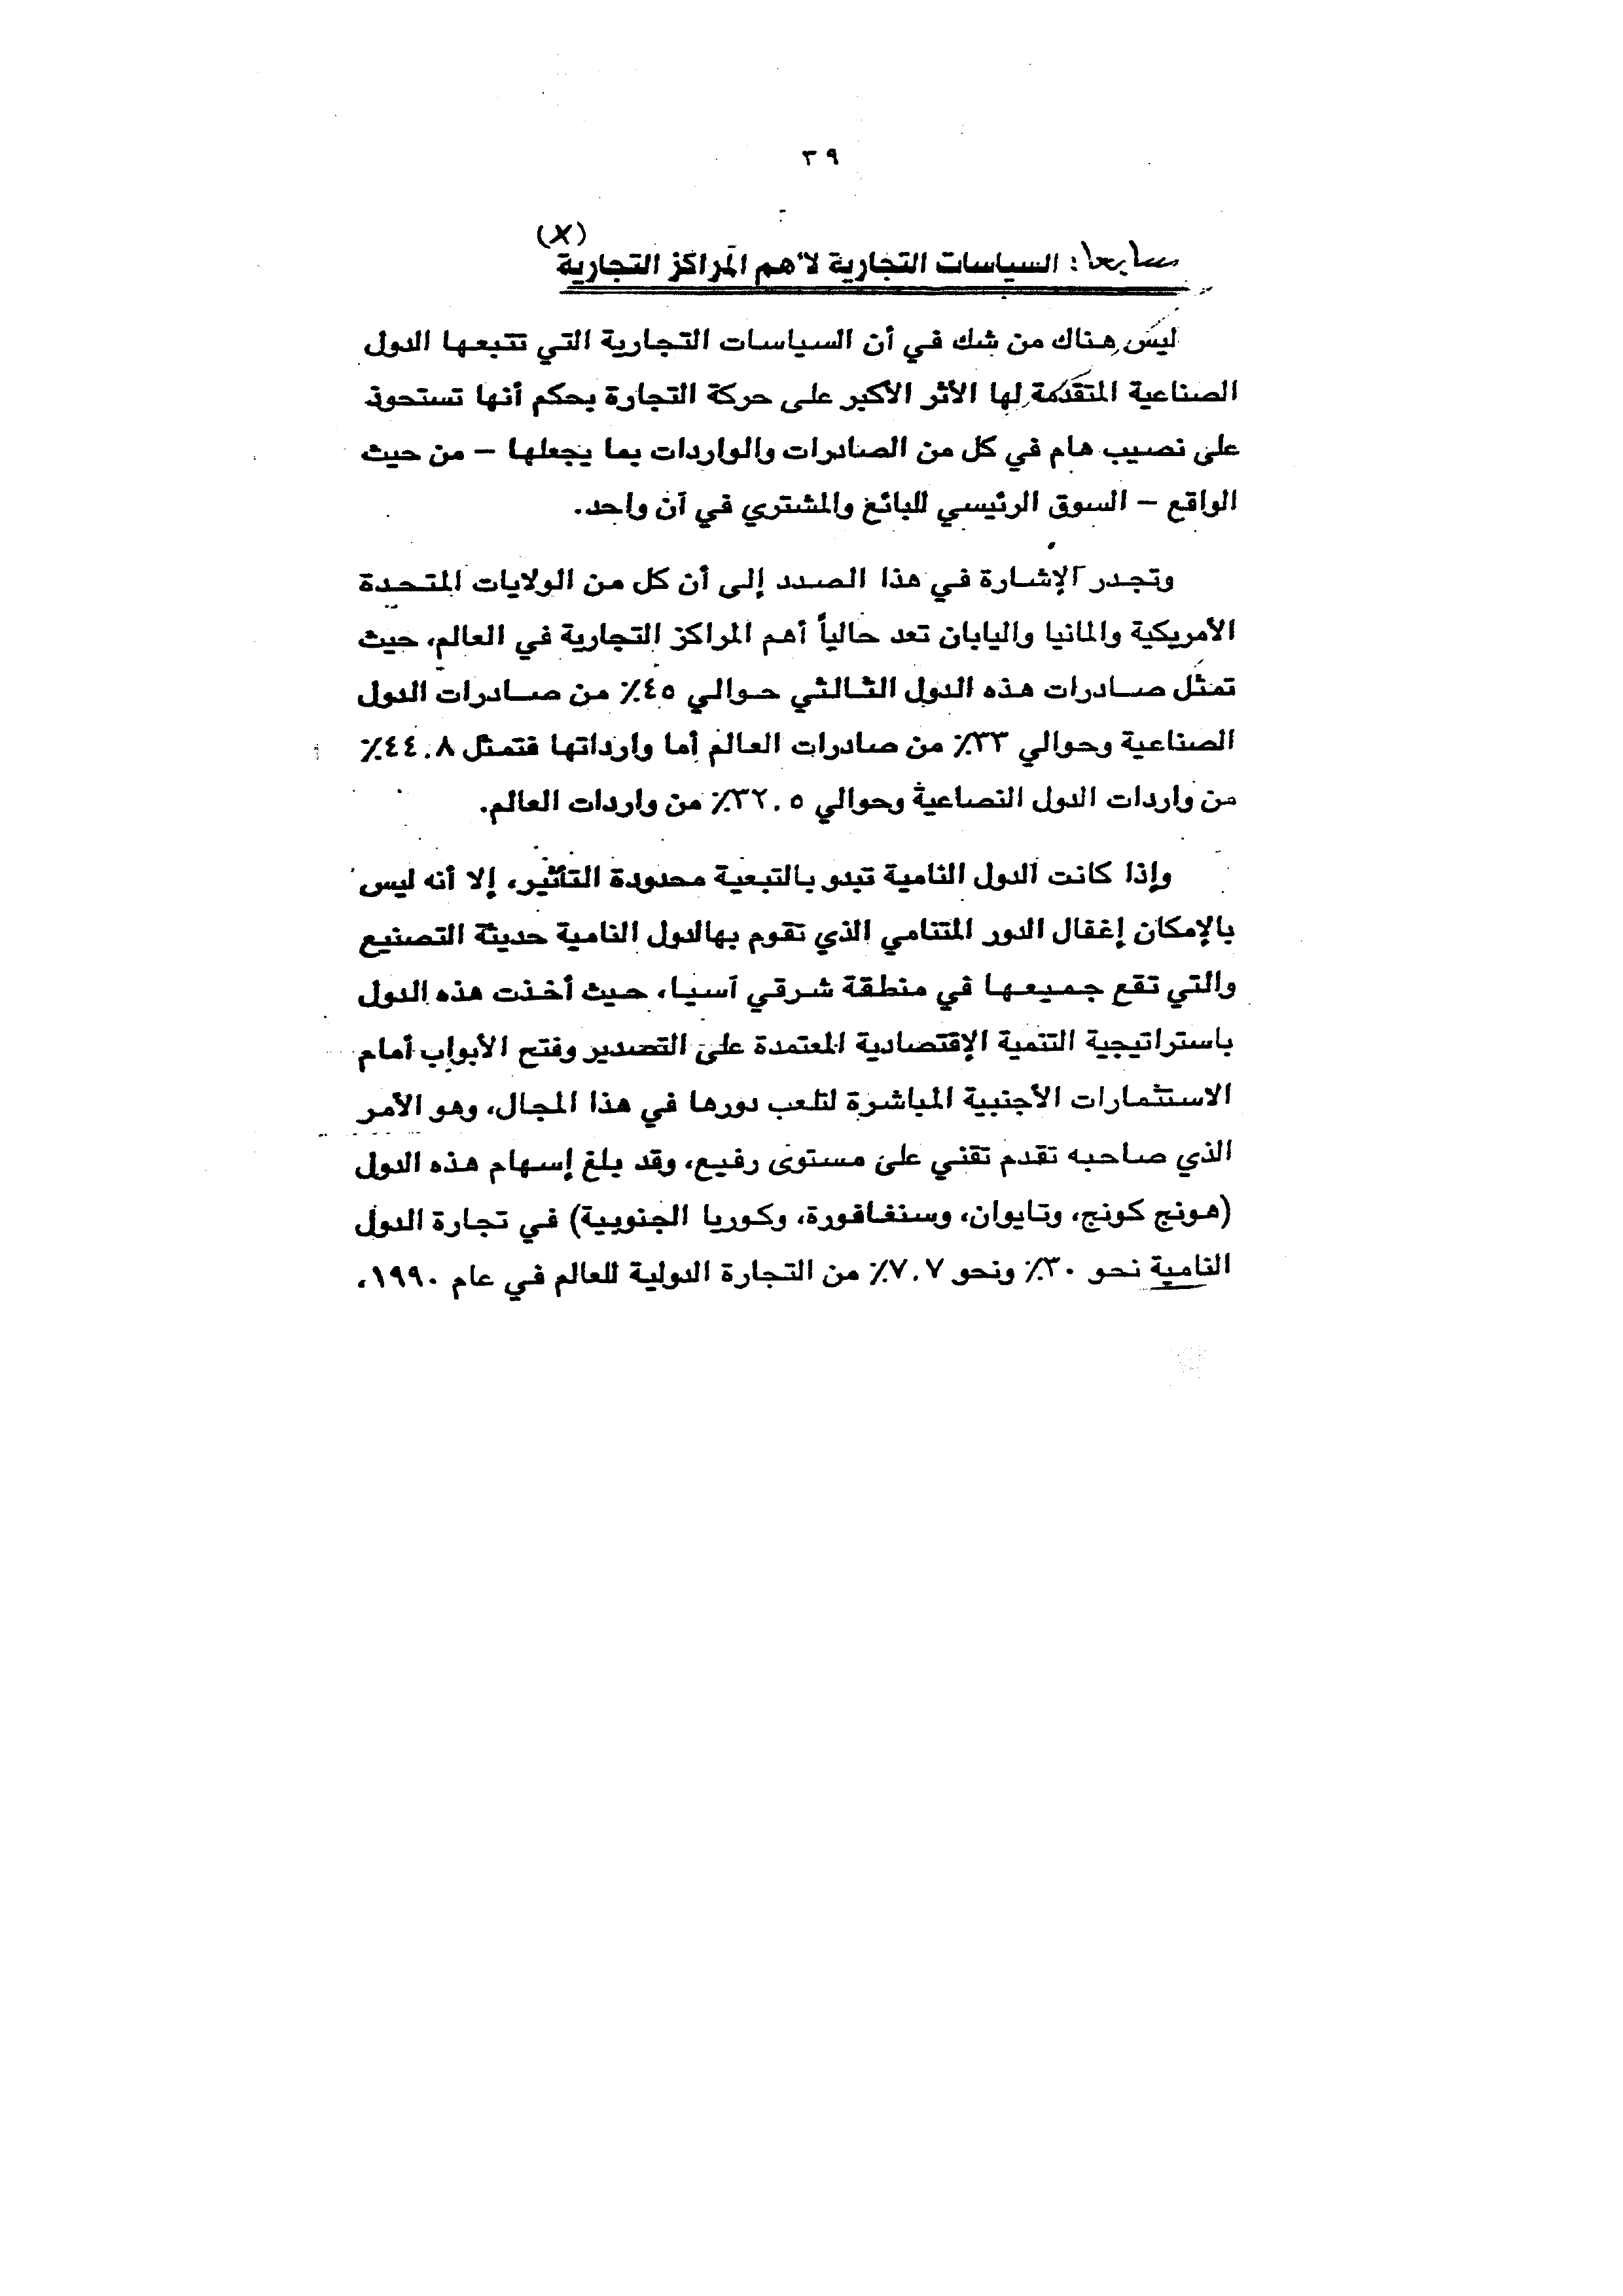 ٣٩
(X)
سابعا: السياسات التجارية لأهم المراكز التجارية
ليس هناك من شك في أن السياسات التجارية التي تتبعها الدول
الصناعية المتقدمة لها الأثر الأكبر على حركة التجارة بحكم أنها تستحوذ
على نصيب هام في كل من الصادرات والواردات بما يجعلها – من حيث
الواقع – السوق الرئيسي للبائع والمشتري في آن واحد.
وتجدر الإشارة في هذا الصدد إلى أن كل من الولايات المتحدة
الأمريكية والمانيا واليابان تعد حالياً أهم المراكز التجارية في العالم، حيث
تمثل صادرات هذه الدول الثالثي حوالي ٤٥٪ من صادرات الدول
الصناعية وحوالي ٣٣٪ من صادرات العالم أما وارداتها فتمثل ٤٤.٨٪
من واردات الدول النصاعية وحوالي ٣٢.٥٪ من واردات العالم.
وإذا كانت الدول النامية تبدو بالتبعية محدودة التأثير، إلا أنه ليس
بالإمكان إغفال الدور المتنامي الذي تقوم بهالدول النامية حديثة التصنيع
والتي تقع جميعها في منطقة شرقي آسيا، حيث أخذت هذه الدول
باستراتيجية التنمية الإقتصادية المعتمدة على التصدير وفتح الأبواب أمام
الاستثمارات الأجنبية المباشرة لتلعب دورها في هذا المجال، وهو الأمر
الذي صاحبه تقدم تقني على مستوى رفيع، وقد بلغ إسهام هذه الدول
(هونج كونج، وتايوان، وسنغافورة، وكوريا الجنوبية) في تجارة الدول
النامية نحو ٣٠٪ ونحو ٧.٧٪ من التجارة الدولية للعالم في عام ١٩٩٠،